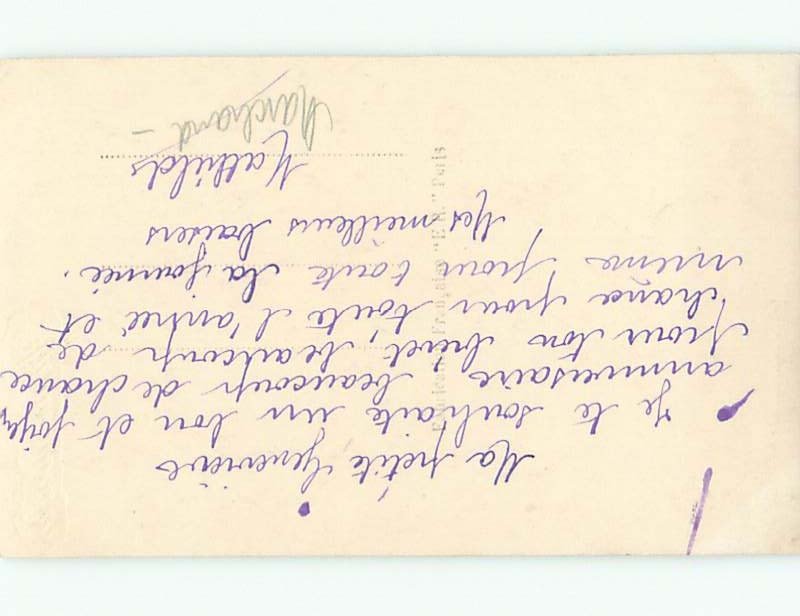 Ma petite Genevieve
Je te souhaite un bon et joyeu
anniversaire, beaucoup de chance
pour ton brevet, beaucoup de
chance pour toute l'année et
même pour toute la journée.
Mes meilleurs baisers
Mathilde
Marchand -
"E.R." Paris